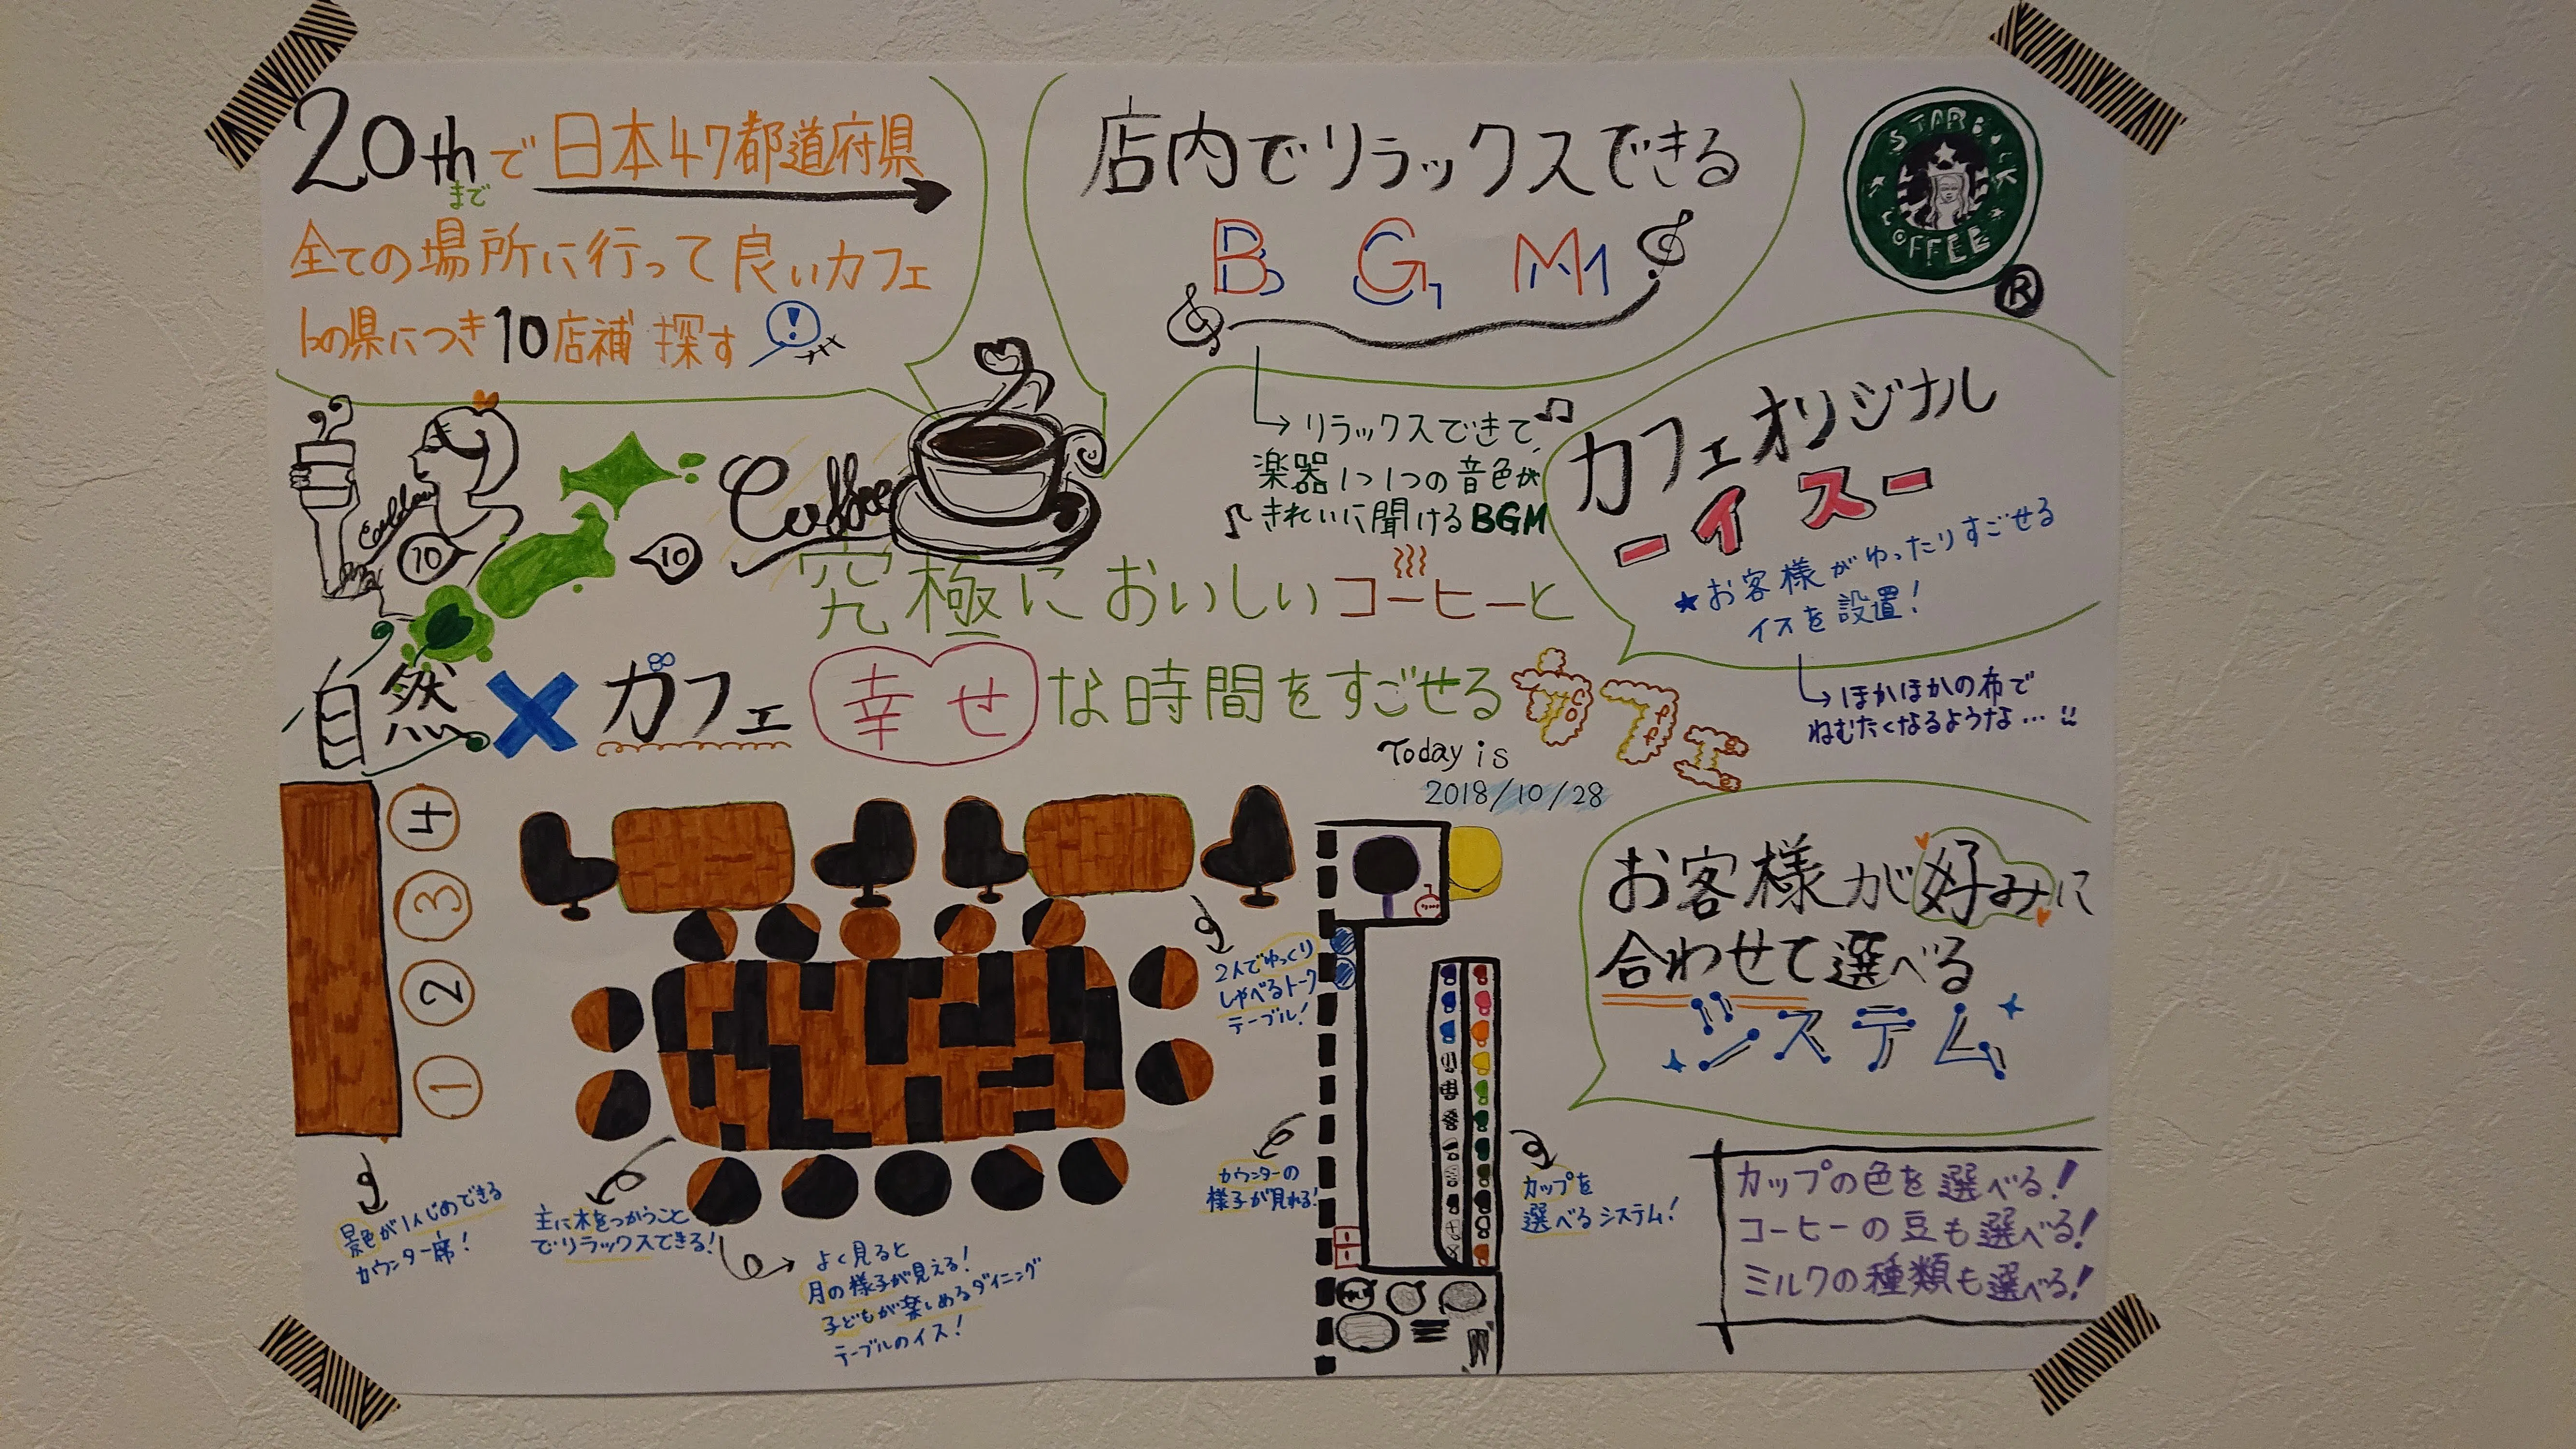 20thで日本47都道府県
まで
全ての場所に行って良いカフェ
1つの県につき10店補探す
!
店内でリラックスできる
BGM
→リラックスできて♫
楽器1つ1つの音色が
♪きれいに聞けるBGM
STARBUCK
COFFEE
®
カフェオリジナル
ーイスー
★お客様がゆったりすごせる
イスを設置!
→ほかほかの布で
ねむたくなるような…
10
10
Coffee
究極においしいコーヒーと
幸せな時間をすごせるカフェ
自然×カフェ
Today is
2018/10/28
4
3
2
1
景色が1人じめできる
カウンター席!
主に木をつかうこと
でリラックスできる!
よく見ると
月の様子が見える!
子どもが楽しめるダイニング
テーブルのイス!
2人でゆっくり
しゃべるトーク
テーブル!
カウンターの
様子が見れる!
カップを
選べるシステム!
お客様が好みに
合わせて選べる
システム
カップの色を選べる!
コーヒーの豆も選べる!
ミルクの種類も選べる!